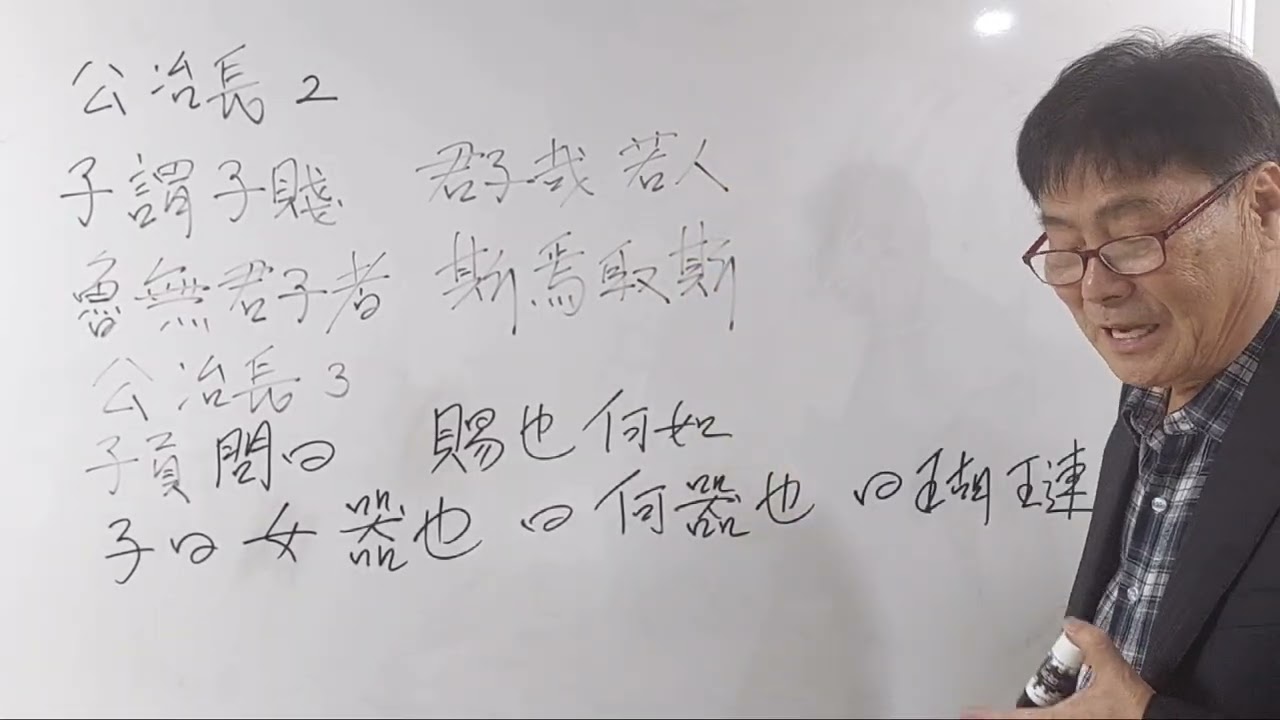 公冶長 2
子謂子賤 君子哉 若人
魯無君子者 斯焉取斯
公冶長 3
子貢問曰 賜也何如
子曰女器也 曰何器也 曰瑚璉